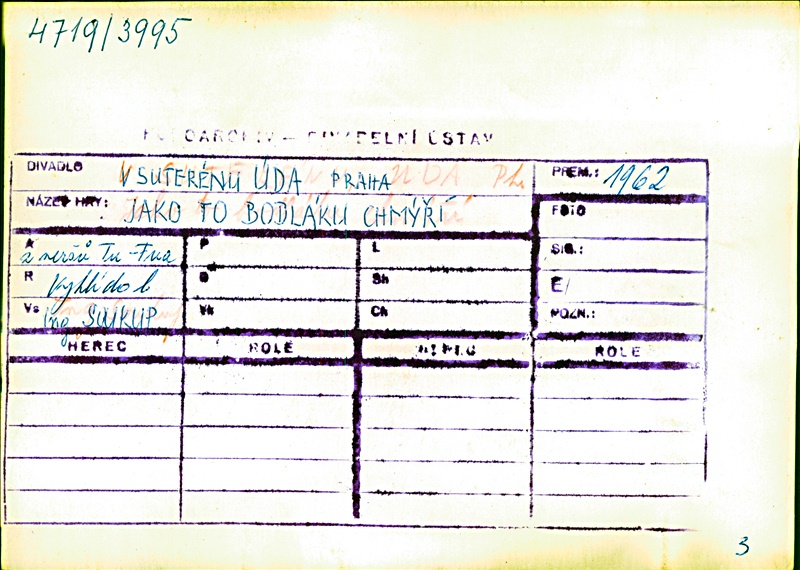 4719/3995
FOTOARCHIV – DIVADELNÍ ÚSTAV
DIVADLO V SUTERÉNU ÚDA PRAHA PREM.: 1962
NÁZEV HRY: JAKO TO BODLÁKU CHMÝŘÍ FOTO
A z veršů Tu-Fua P L SIG.:
R Vyhlídal D Sh E/
Vs ing SOUKUP Vk Ch POZN.:
HEREC ROLE HEREC ROLE
3